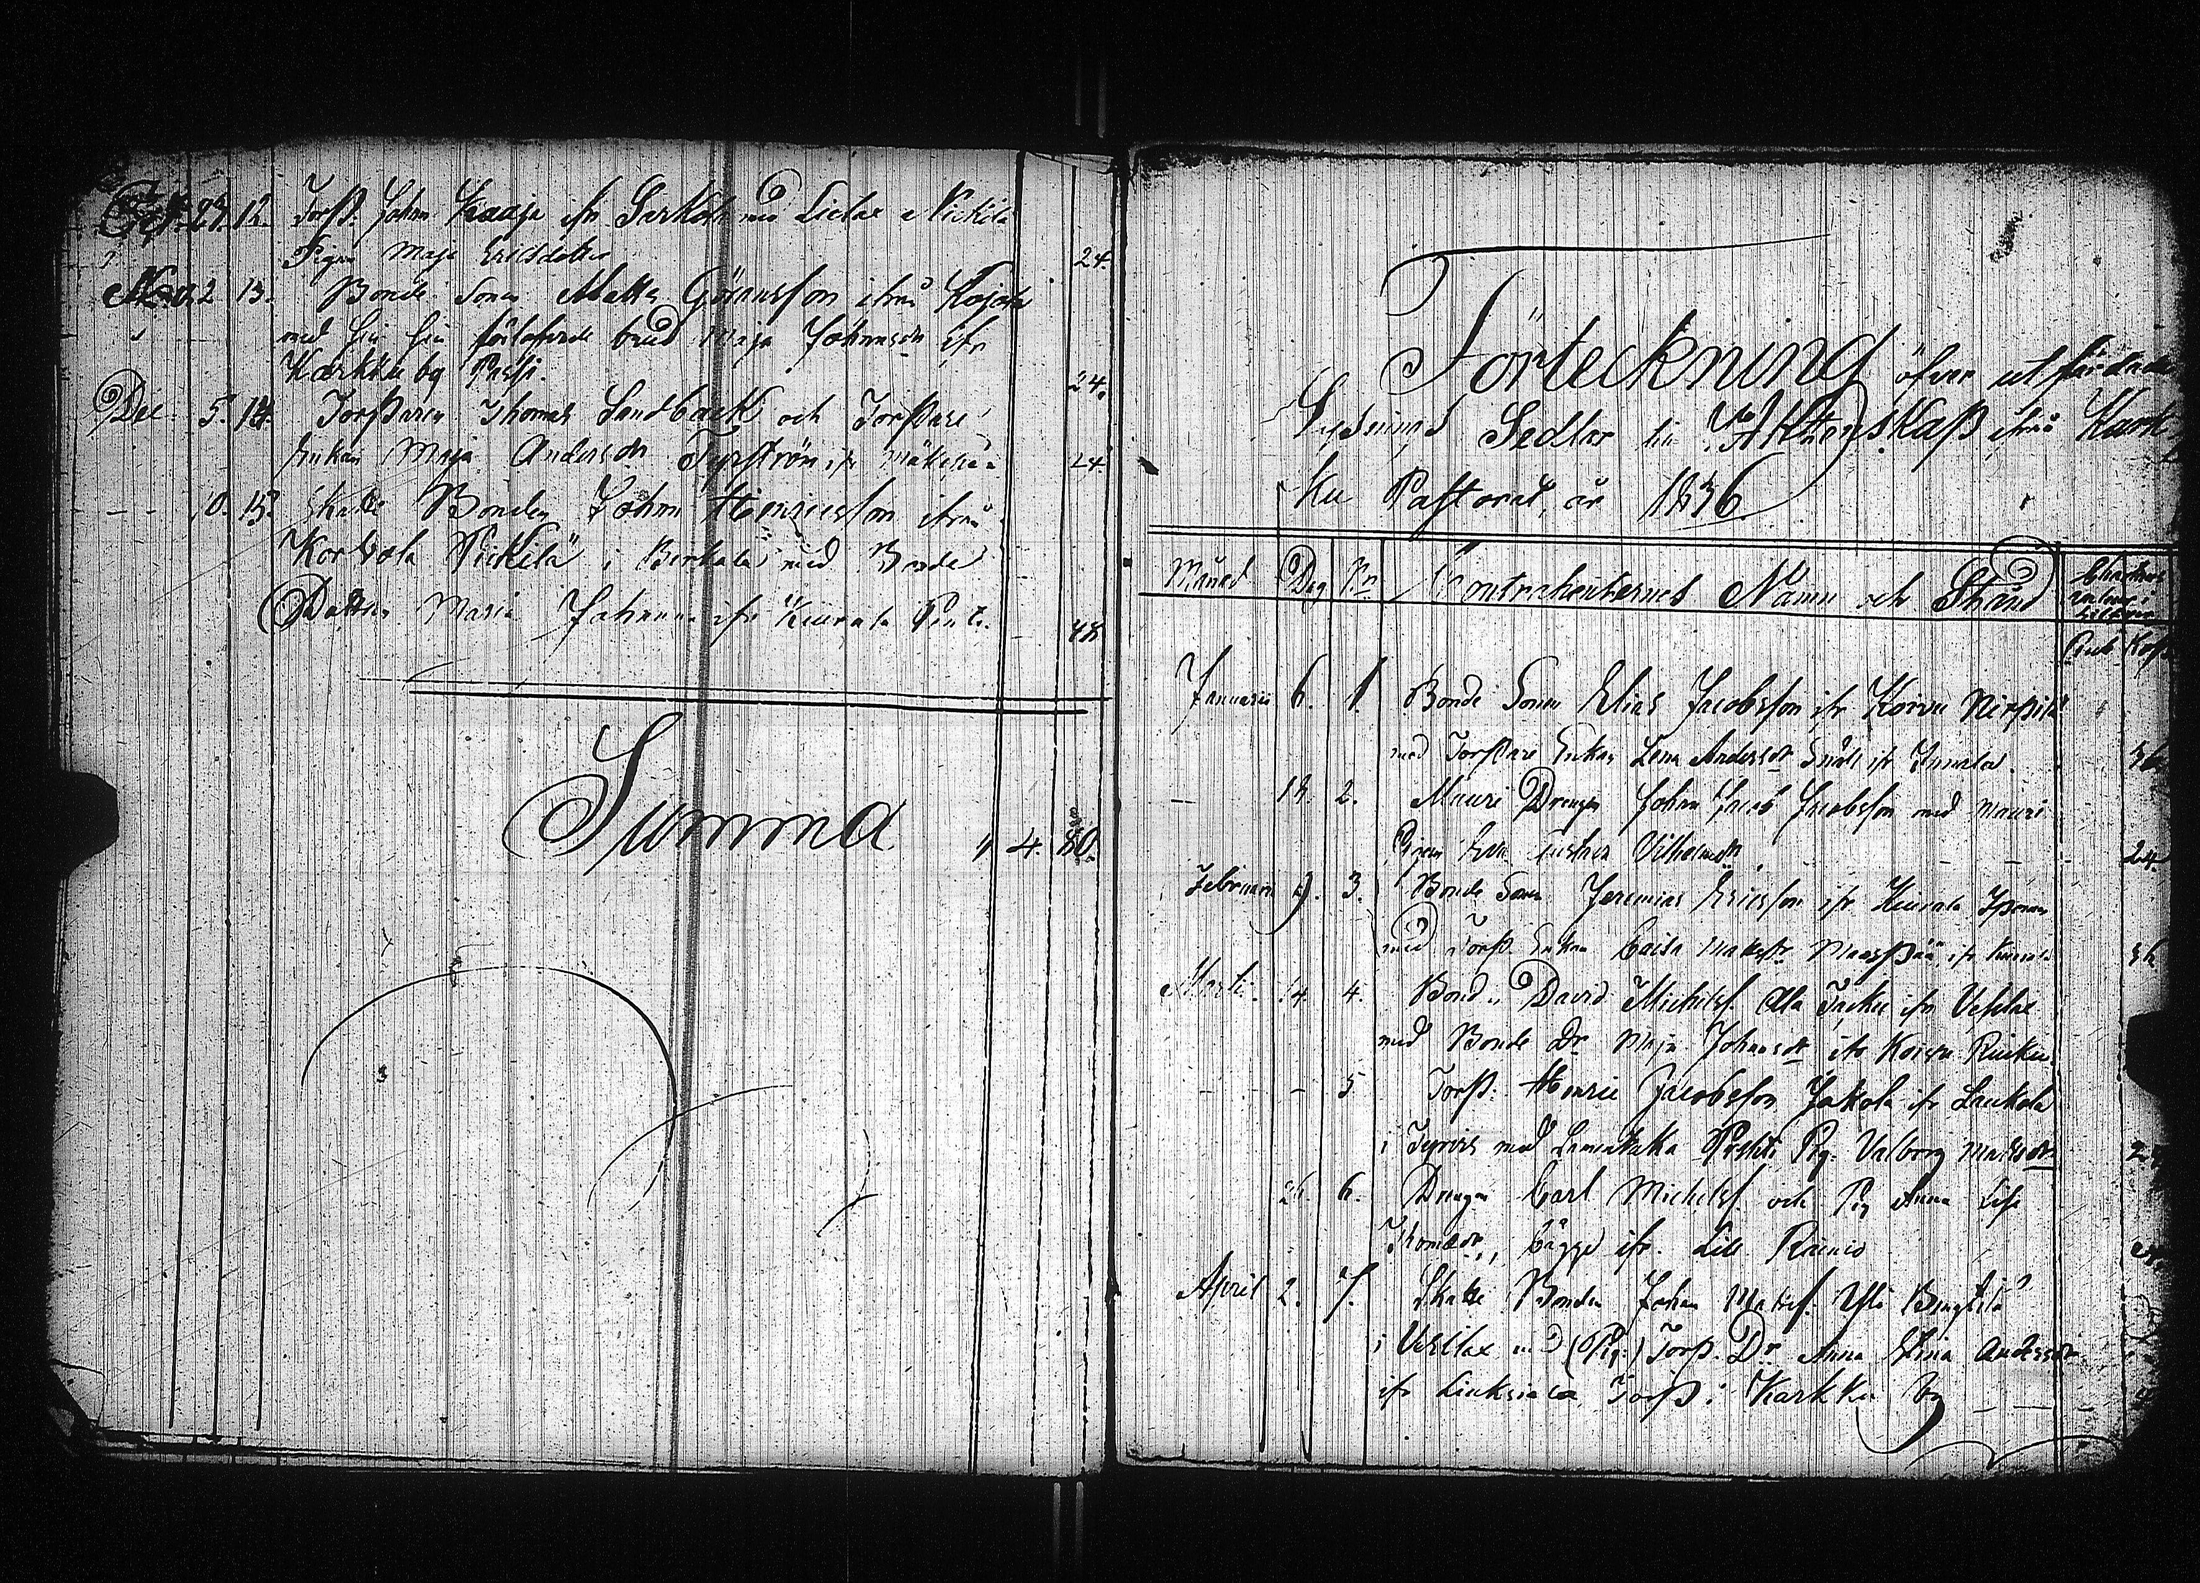 Oct. 27. 12. Torp. Johan Kaaja ifr Sarkola med Lielax Nickilä
Pigan Maja Ericsdotter 24.
Nov. 2 13. Bonde Sonen Matts Göransson ifrån Kojola
med sin förlofvade brud Maja Johansdr ifr
Karkku by Passi. 24.
Dec 5. 14. Torparen Thomas Sandback och Torpare
Enkan Maja Andersdr Fyrström ifr Mäkipää 24
- - 10. 15. Skatte Bonden Johan Henricsson ifrån
Korvola Pickilä i Birkala med Bonde
Dottren Maria Johanna ifr Kiurala 48
Summa 4. 80.
Förteckning öfver utfärdade
Lysnings Sedlar till Äktenskap ifrån Kark
ku Pastorat, år 1836.
Månad Dag No Contrahenternes Namn och Stånd
Rub Kop
Januarii 6. 1. Bonde Sonen Elias Jacobsson ifr Koivu Nirpilä
med Torpare Enkan Lena Andersdr Enäli ifr Innala. 36
- 18. 2. Mauri Drengen Johan Jacobsson med Mauri
Pigan Eva Gustava Vilhelmdr 24.
Februari 9. 3. Bonde Sonen Jeremias Ericsson ifr Kiurala Iponen
med Torp. Enkan Caisa Mattsdr Maaspää, ifr Kiurala 36
Marti. 14 4. Bond. David Michelsf. Ala Jacku ifr Vesilax
med Bonde Dr Maja Johansdr ifr Koivu Ruikku
- - 5 Torp. Henric Jacobsson Jakola ifr Laukola
i Tyrvis med Lamettakka Pertti Pig. Valborg Mattsdr 24
26 6. Drengen Carl Michelsf. och Pig Anna Lisa
Thomædr, bägge ifr. Lill Rainio
April 2. 7. Skatte Bonden Johan Mattsf. Yli Bengtilä
i Vesilax med (Pig.) Torp. Dr Anna Stina Andersdr
ifr Liuksiala Torp i Karkku by